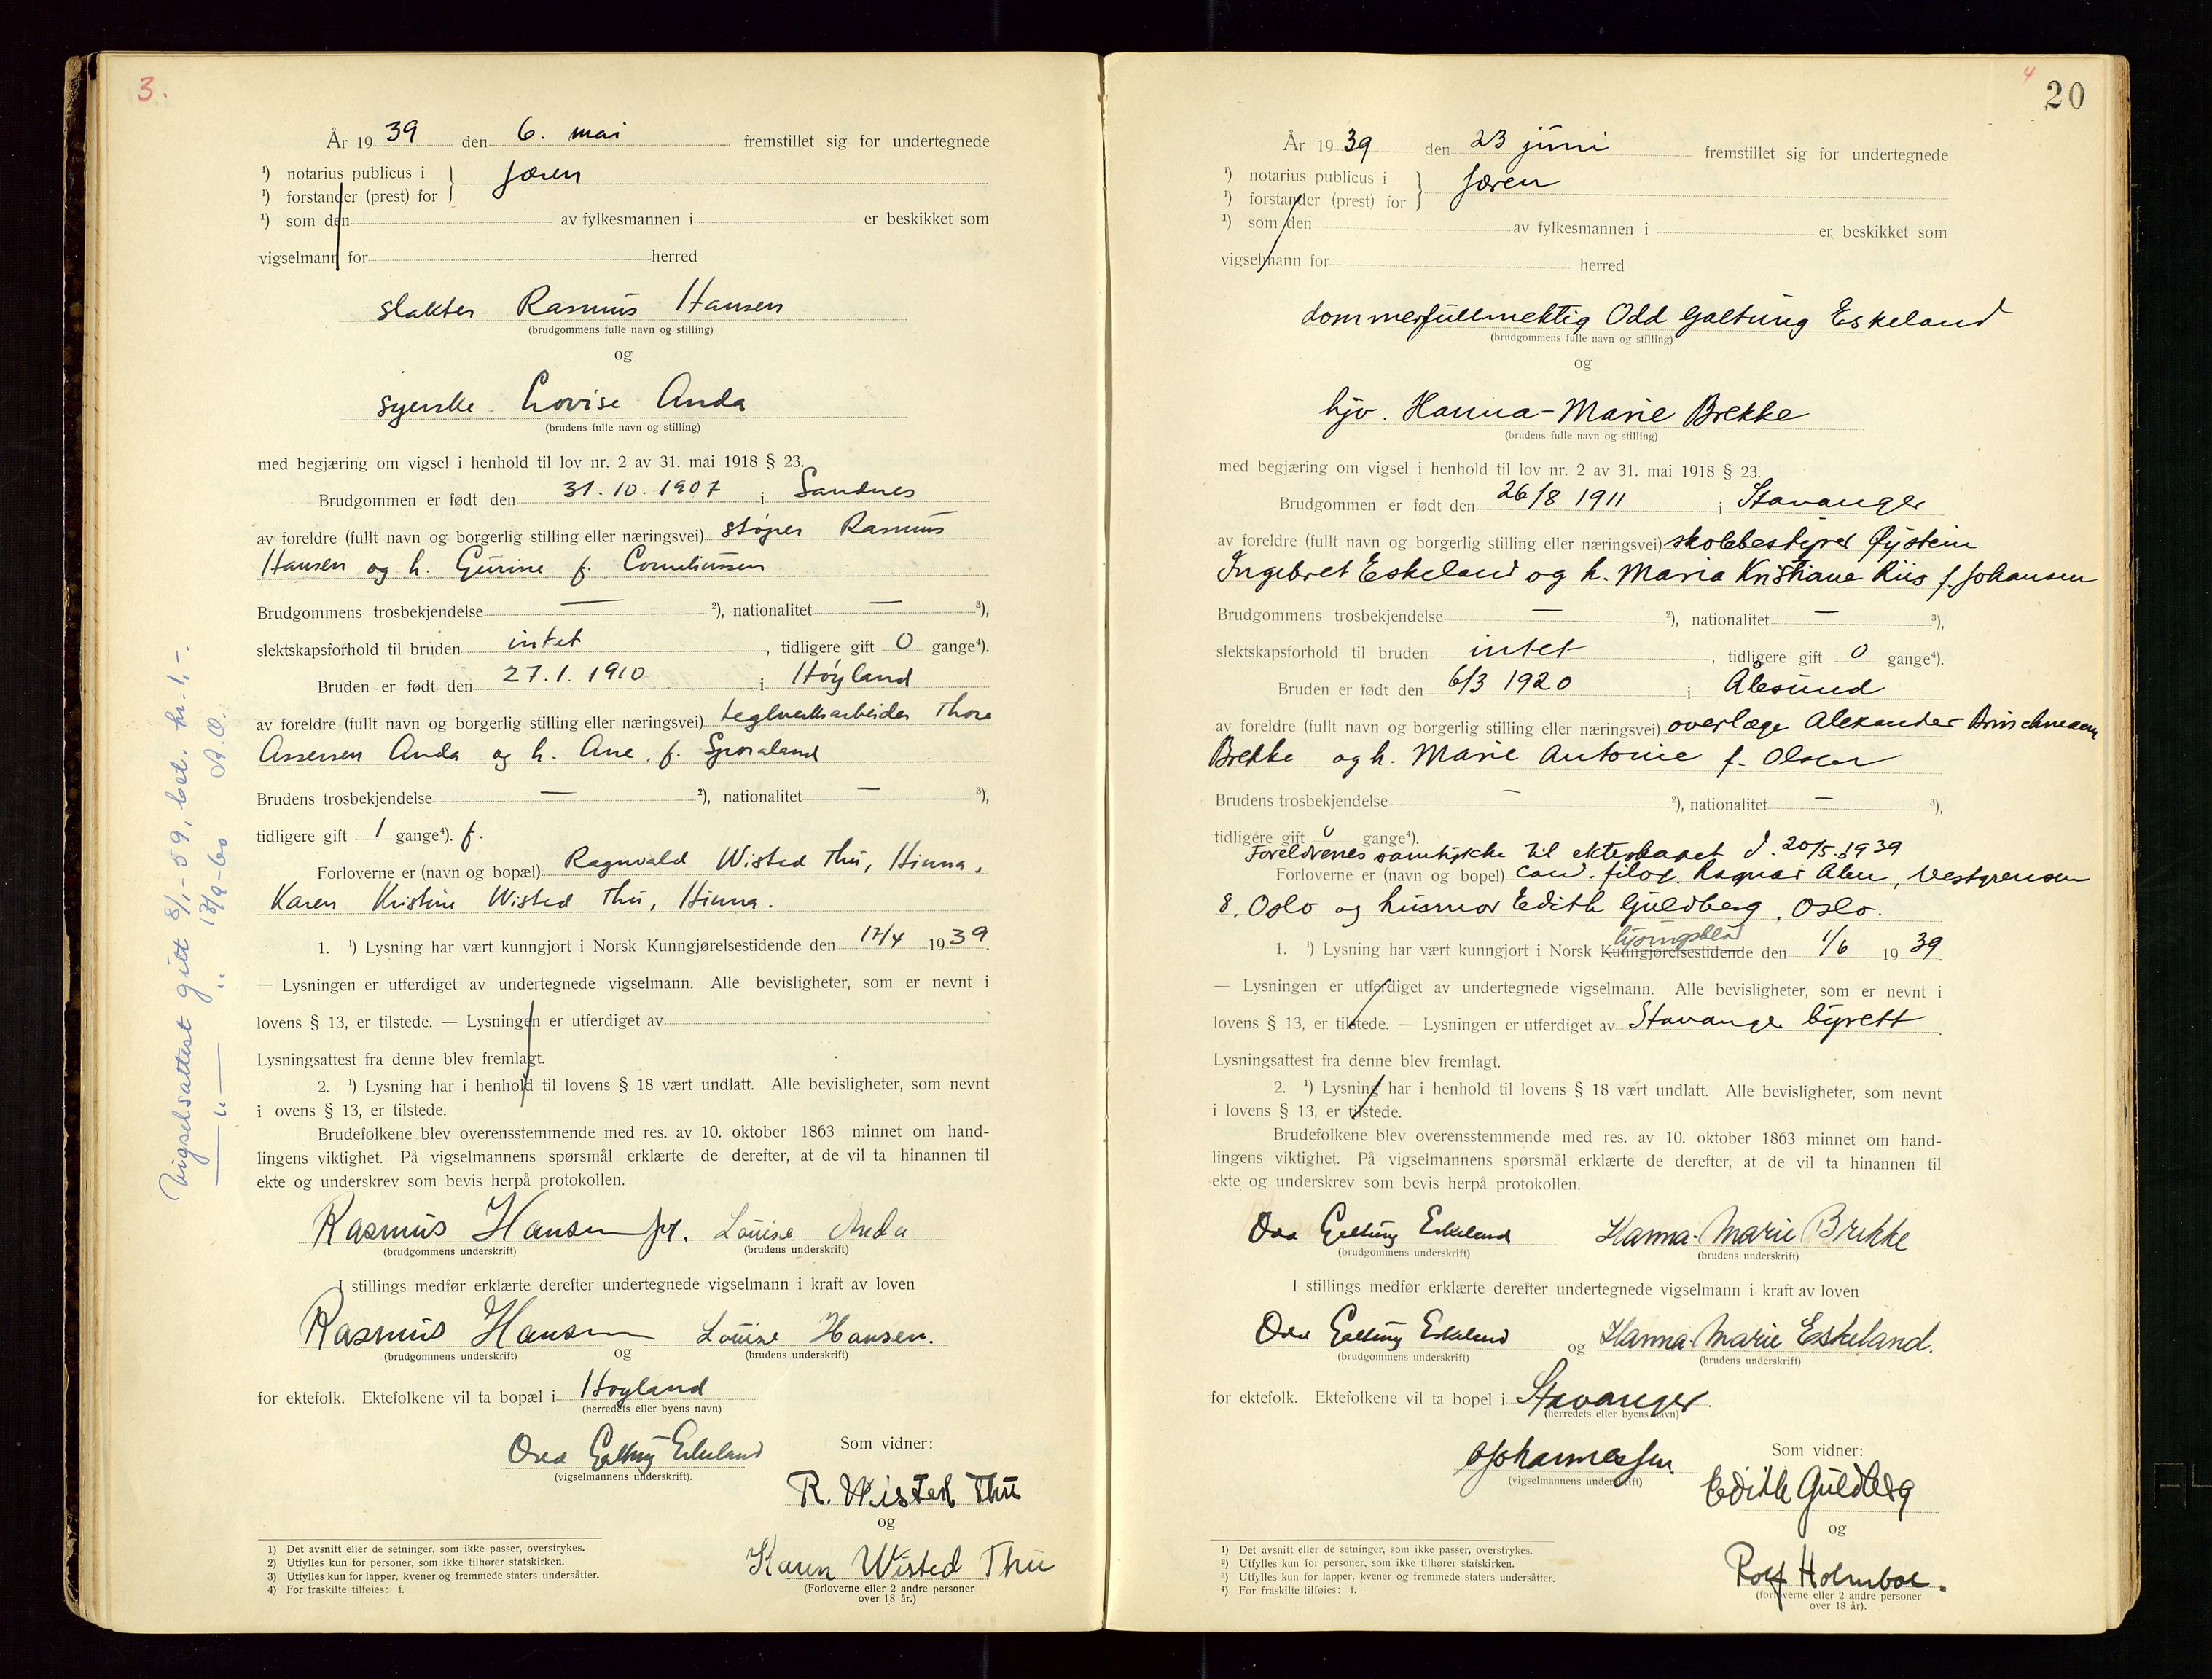 3.
År 1939 den 6. mai fremstillet sig for undertegnede
¹) notarius publicus i } Jæren
¹) forstander (prest) for
¹) som den av fylkesmannen i er beskikket som
vigselmann for herred
slakter Rasmus Hansen
(brudgommens fulle navn og stilling)
og
syerske Lovise Anda
(brudens fulle navn og stilling)
med begjæring om vigsel i henhold til lov nr. 2 av 31. mai 1918 § 23.
Brudgommen er født den 31.10.1907 i Sandnes
av foreldre (fullt navn og borgerlig stilling eller næringsvei) støper Rasmus
Hansen og h. Gurine f. Corneliussen
Brudgommens trosbekjendelse — ²), nationalitet — ³),
slektskapsforhold til bruden intet, tidligere gift 0 gange⁴).
Bruden er født den 27.1.1910 i Høyland
av foreldre (fullt navn og borgerlig stilling eller næringsvei) teglverksarbeider Thore
Assersen Anda og h. Ane, f.
Brudens trosbekjendelse — ²), nationalitet — ³),
tidligere gift 1 gange⁴). f.
Forloverne er (navn og bopæl) Ragnvald Wisted Thu, Hinna,
Karen Kristine Wisted Thu, Hinna.
1. ¹) Lysning har vært kunngjort i Norsk Kunngjørelsestidende den 17/4 1939.
— Lysningen er utferdiget av undertegnede vigselmann. Alle bevisligheter, som er nevnt i
lovens § 13, er tilstede. — Lysningen er utferdiget av
Lysningsattest fra denne blev fremlagt.
2. ¹) Lysning har i henhold til lovens § 18 vært undlatt. Alle bevisligheter, som nevnt
i ovens § 13, er tilstede.
Brudefolkene blev overensstemmende med res. av 10. oktober 1863 minnet om hand-
lingens viktighet. På vigselmannens spørsmål erklærte de derefter, at de vil ta hinannen til
ekte og underskrev som bevis herpå protokollen.
Rasmus Hansen jr. Louise Anda
(brudgommens underskrift) (brudens underskrift)
I stillings medfør erklærte derefter undertegnede vigselmann i kraft av loven
Rasmus Hansen og Louise Hansen.
(brudgommens underskrift) (brudens underskrift)
for ektefolk. Ektefolkene vil ta bopæl i Høyland
(herredets eller byens navn)
Odd Galtung Eskeland
(vigselmannens underskrift).
Som vidner:
R. Wisted Thu
og
Karen Wisted Thu
(Forloverne eller 2 andre personer
over 18 år.)
1) Det avsnitt eller de setninger, som ikke passer, overstrykes.
2) Utfylles kun for personer, som ikke tilhører statskirken.
3) Utfylles kun for lapper, kvener og fremmede staters undersåtter.
4) For fraskilte tilføies: f.
Vigselsattest gitt 8/1-59, bet. kr. 1,-.
— " — " 13/9-60
4
20
År 1939 den 23 juni fremstillet sig for undertegnede
¹) notarius publicus i } Jæren
¹) forstander (prest) for
¹) som den av fylkesmannen i er beskikket som
vigselmann for herred
dommerfullmektig Odd Galtung Eskeland
(brudgommens fulle navn og stilling)
og
hjv. Hanna-Marie Brekke
(brudens fulle navn og stilling)
med begjæring om vigsel i henhold til lov nr. 2 av 31. mai 1918 § 23.
Brudgommen er født den 26/8 1911 i Stavanger
av foreldre (fullt navn og borgerlig stilling eller næringsvei) skolebestyrer Øystein
Ingebret Eskeland og h. Maria Kristiane Riis f. Johansen
Brudgommens trosbekjendelse — ²), nationalitet — ³),
slektskapsforhold til bruden intet, tidligere gift 0 gange⁴).
Bruden er født den 6/3 1920 i Ålesund
av foreldre (fullt navn og borgerlig stilling eller næringsvei) overlæge Alexander
Brekke og h. Marie Antonie f. Olsen
Brudens trosbekjendelse — ²), nationalitet — ³),
tidligere gift 0 gange⁴).
Foreldrenes samtykke til ekteskapet d. 20/5.1939
Forloverne er (navn og bopel) cand. filol. Ragnar Alm, Vestgrensen
8, Oslo og husmor Edith Guldberg, Oslo.
lysingsblad
1. ¹) Lysning har vært kunngjort i Norsk Kunngjørelsestidende den 1/6 1939.
— Lysningen er utferdiget av undertegnede vigselmann. Alle bevisligheter, som er nevnt i
lovens § 13, er tilstede. — Lysningen er utferdiget av Stavanger byrett
Lysningsattest fra denne blev fremlagt.
2. ¹) Lysning har i henhold til lovens § 18 vært undlatt. Alle bevisligheter, som nevnt
i lovens § 13, er tilstede.
Brudefolkene blev overensstemmende med res. av 10. oktober 1863 minnet om hand-
lingens viktighet. På vigselmannens spørsmål erklærte de derefter, at de vil ta hinannen til
ekte og underskrev som bevis herpå protokollen.
Odd Galtung Eskeland Hanna-Marie Brekke
(brudgommens underskrift) (brudens underskrift)
I stillings medfør erklærte derefter undertegnede vigselmann i kraft av loven
Odd Galtung Eskeland og Hanna-Marie Eskeland.
(brudgommens underskrift) (brudens underskrift)
for ektefolk. Ektefolkene vil ta bopel i Stavanger.
(herredets eller byens navn)
Johannessen
(vigselmannens underskrift)
Som vidner:
Edith Guldberg
og
Rolf Holmboe.
(forloverne eller 2 andre personer
over 18 år).
¹) Det avsnitt eller de setninger, som ikke passer, overstrykes.
²) Utfylles kun for personer, som ikke tilhører statskirken.
³) Utfylles kun for lapper, kvener og fremmede staters undersåtter.
⁴) For fraskilte tilføies: f.